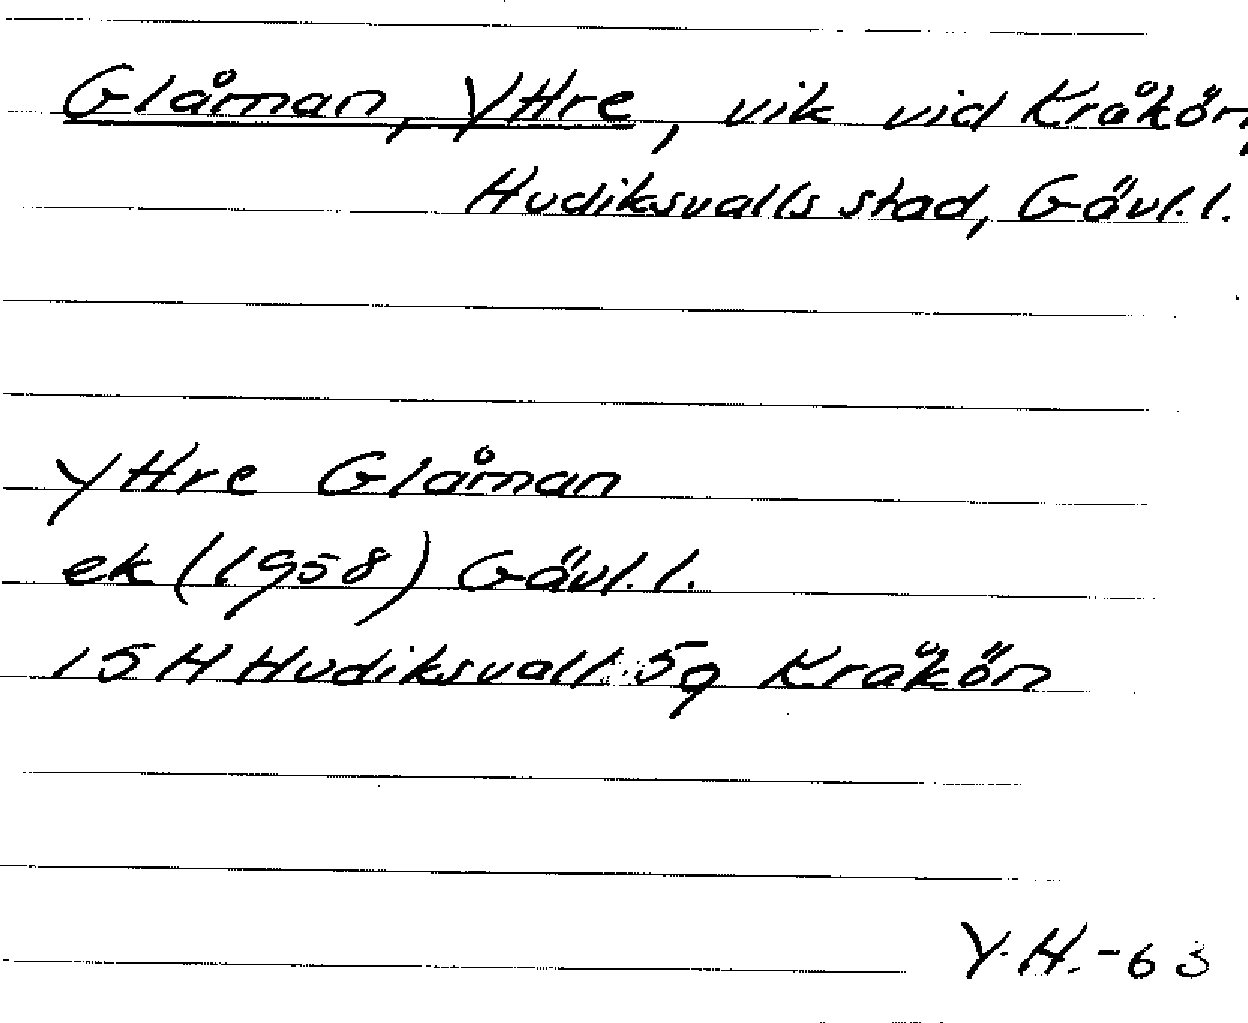 Glåman, Yttre, vik vid Kråkön,
Hudiksvalls stad, Gävl.l.
Yttre Glåman
ek (1958) Gävl.l.
15H Hudiksvall 5g Kråkön
Y.H.-63